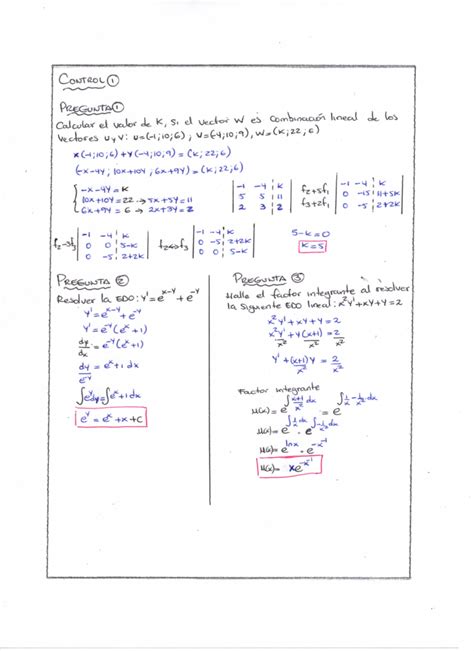 CONTROL ①
PREGUNTA ①
Calcular el valor de K, si el vector W es combinación lineal de los
vectores u y v: u=(-1;10;6) ; v=(-4;10;9), w=(k;22;6)
x(-1;10;6)+y(-4;10;9)=(k;22;6)
(-x-4y; 10x+10y; 6x+9y)=(k;22;6)
-x-4y=k
10x+10y=22 → 5x+5y=11
6x+9y=6 → 2x+3y=2
-1 -4 k
5 5 11
2 3 2
f2+5f1
f3+2f1
-1 -4 k
0 -15 11+5k
0 -5 2+2k
f2→f3
-1 -4 k
0 0 5-k
0 -5 2+2k
f2↔f3
-1 -4 k
0 -5 2+2k
0 0 5-k
5-k=0
k=5
PREGUNTA ②
Resolver la EDO: y'=e^x-y + e^-y
y'=e^x-y + e^-y
y'=e^-y(e^x+1)
dy/dx = e^-y(e^x+1)
dy/e^-y = e^x+1 dx
∫e^y dy=∫e^x+1 dx
e^y = e^x + x + C
PREGUNTA ③
Halle el factor integrante al resolver
la siguiente EDO lineal: x²y'+xy+y=2
x²y'+xy+y=2
x²y'/x² + y(x+1)/x² = 2/x²
y' + (x+1)/x² y = 2/x²
Factor integrante
μ(x)= e^∫(x+1)/x² dx = e^∫1/x + 1/x² dx
μ(x)= e^∫1/x dx · e^∫1/x² dx
μ(x)= e^lnx · e^-x^-1
μ(x)= xe^-x^-1